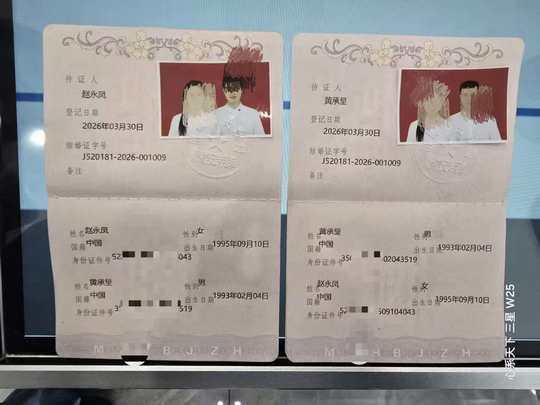 持证人
赵永凤
登记日期
2026年03月30日
结婚证字号
J520181-2026-001009
备注
姓名 赵永凤 性别 女
国籍 中国 出生日期 1995年09月10日
身份证件号 52 043
姓名 黄承呈 性别 男
国籍 中国 出生日期 1993年02月04日
身份证件号 3 519
M B J Z H
持证人
黄承呈
登记日期
2026年03月30日
结婚证字号
J520181-2026-001009
备注
姓名 黄承呈 性别 男
国籍 中国 出生日期 1993年02月04日
身份证件号 35 02043519
姓名 赵永凤 性别 女
国籍 中国 出生日期 1995年09月10日
身份证件号 52 509104043
M H B J Z H
心系天下 三星 W25